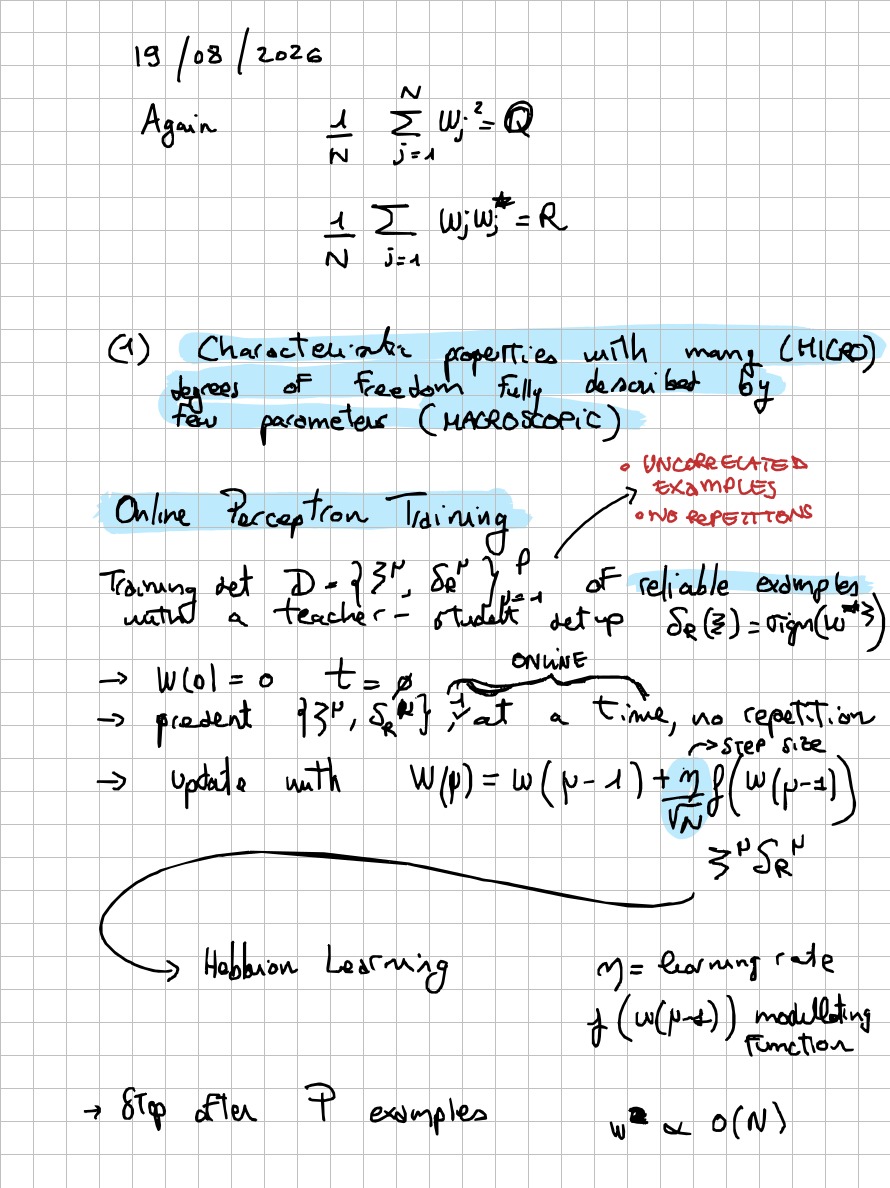 19/08/2026
Again 1/N Σ_{j=1}^{N} W_j² = Q
1/N Σ_{j=1} W_j W_j* = R
(1) Characteristic properties with many (MICRO)
degrees of freedom fully described by
few parameters (MACROSCOPIC)
• UNCORRELATED
EXAMPLES
• NO REPETITIONS
Online Perceptron Training
Training set D = {ξ^μ, S_R^μ}_{μ=1}^{P} of reliable examples
with a teacher - student set up S_R(ξ) = sign(w*ξ)
ONLINE
→ W(0) = 0 t = 0
→ present {ξ^μ, S_R^μ}, 1 at a time, no repetition
→ STEP SIZE
→ update with W(μ) = W(μ-1) + η/√N f(W(μ-1))
ξ^μ S_R^μ
→ Hebbian Learning η = learning rate
f(W(μ-1)) modullating
function
→ Stop after P examples w² ∝ O(N)